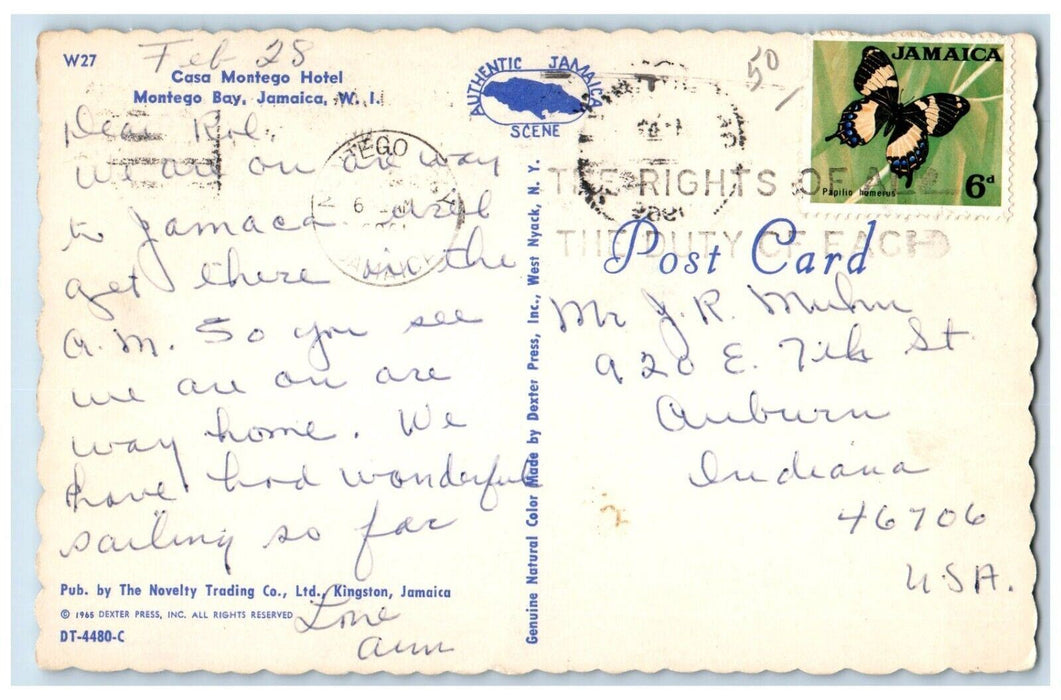 W27
Feb 28
50
Casa Montego Hotel
Montego Bay, Jamaica, W. I.
AUTHENTIC JAMAICA
SCENE
JAMAICA
Papilio homerus
6d
TEGO
THE RIGHTS OF ALL
THE DUTY OF EACH
Post Card
Dear
we are on are way
to Jamaca
get there in the
A.M. So you see
we are on are
way home. We
have had wonderful
sailing so far
Love
Ann
Mr J. R.
920 E. 7th St.
Auburn
Indiana
46706
USA.
Genuine Natural Color Made by Dexter Press, Inc., West Nyack, N. Y.
Pub. by The Novelty Trading Co., Ltd., Kingston, Jamaica
© 1965 DEXTER PRESS, INC. ALL RIGHTS RESERVED
DT-4480-C